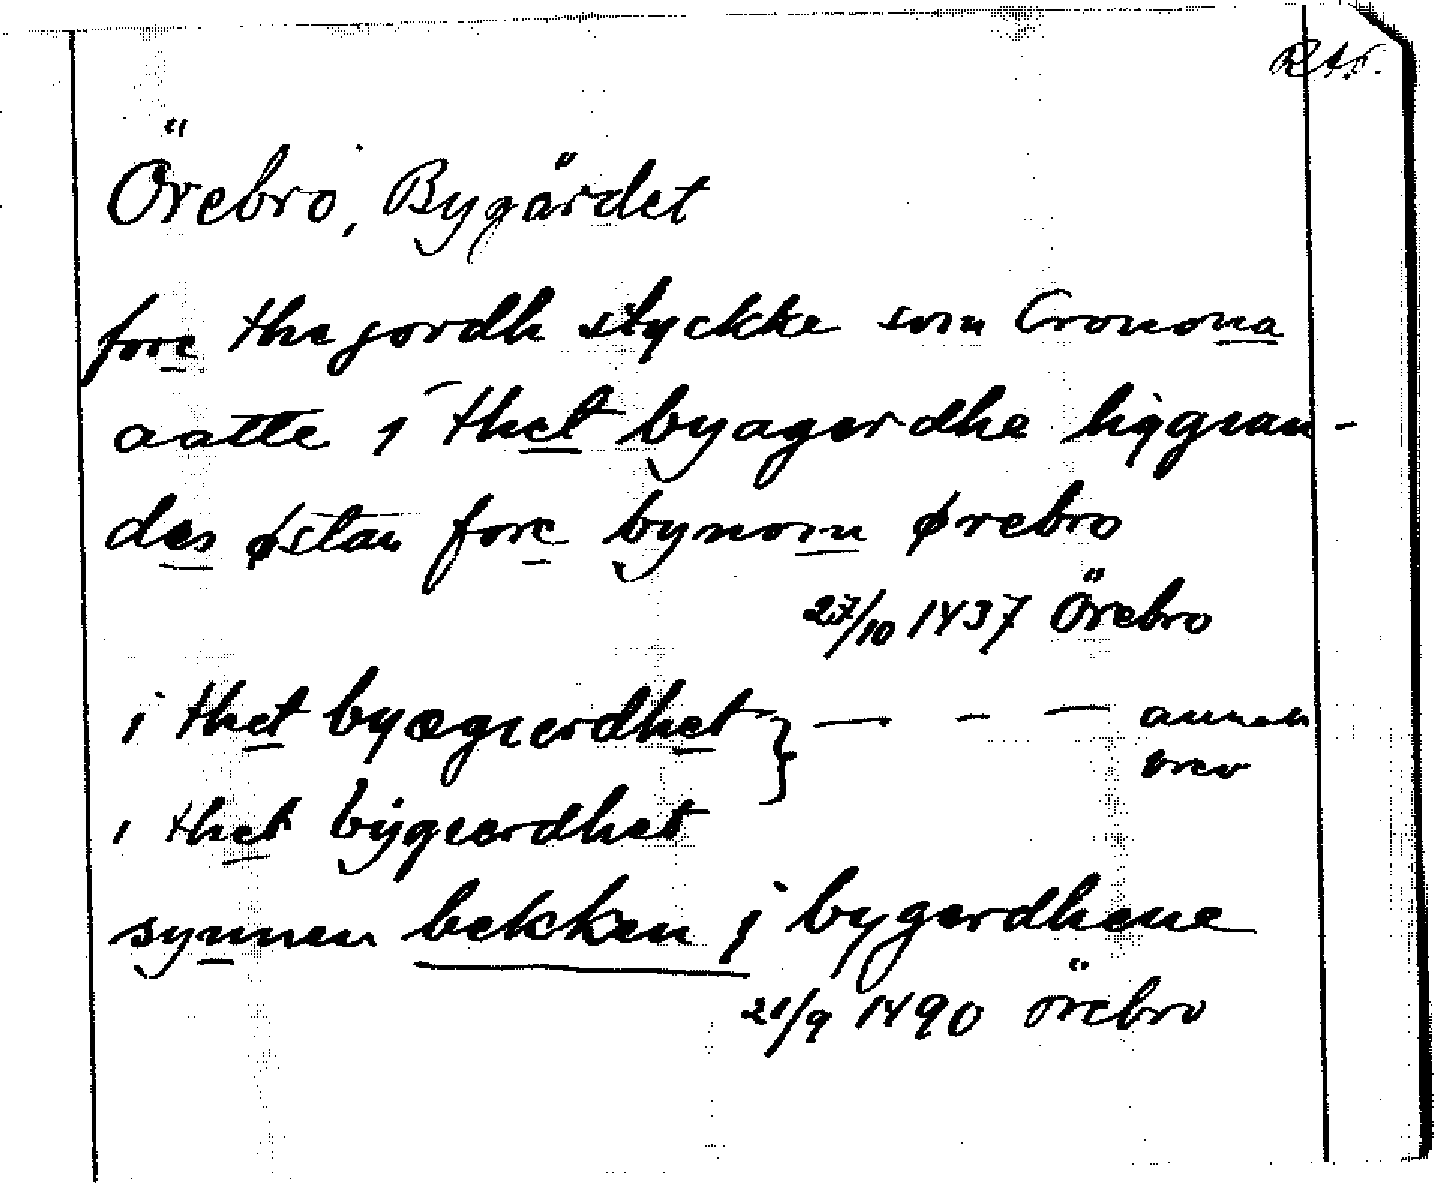 RAp.
Örebro, Bygärdet
fore the jordh stykke som Cronona
aatte i thet byagerdhe liggian-
des østan fore bynom ørebro
27/10 1437 Örebro
i thet byægierdhet } — - — annat
brev
i thet bygierdhet
synnen bekken j bygerdhene
21/9 1490 örebro